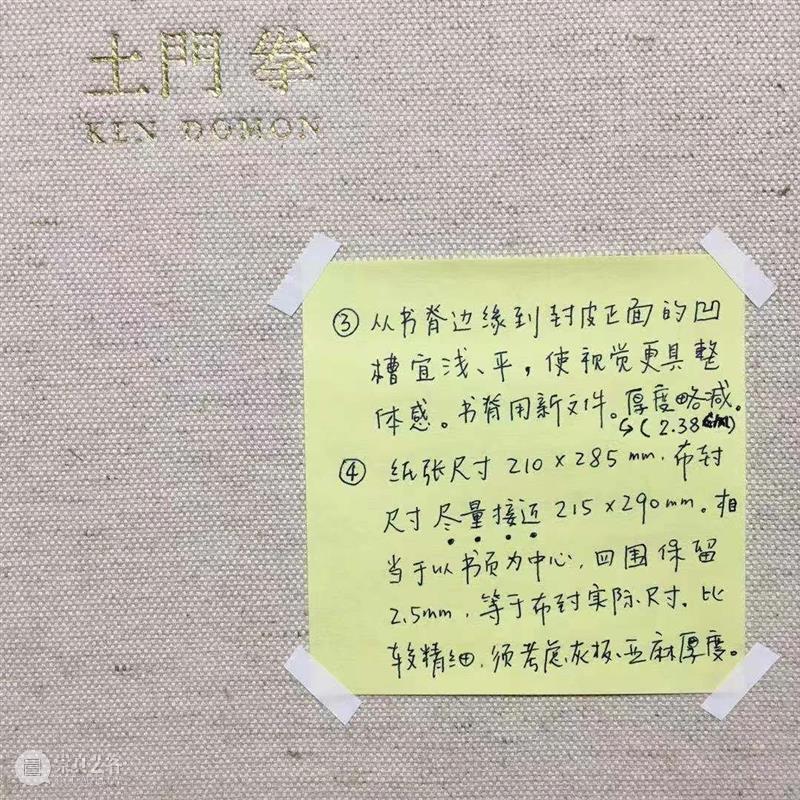 土門拳
KEN DOMON
③ 从书脊边缘到封皮正面的凹
槽宜浅、平，使视觉更具整
体感。书脊用新文件。厚度略减。
(2.38cm)
④ 纸张尺寸 210×285 mm. 布封
尺寸尽量接近 215×290mm。相
当于以书页为中心，四围保留
2.5mm，等于布封实际尺寸。比
较精细，须考虑灰板、亚麻厚度。